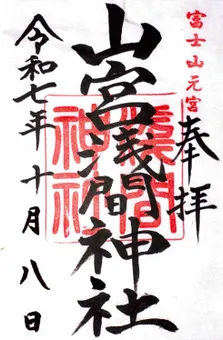 富士山元宮
奉拝
山宮浅間神社
令和七年十月八日